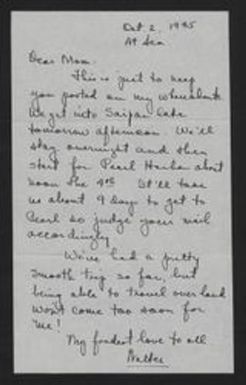 Oct 2, 1945
At Sea
Dear Mom -
This is just to keep
you posted on my whereabouts.
We get into Saipan late
tomorrow afternoon. We'll
stay overnight and then
start for Pearl Harbor about
noon the 4th. It'll take
us about 9 days to get to
Pearl so judge your mail
accordingly.
We've had a pretty
smooth trip so far, but
being able to travel overland
won't come too soon for
"me"!
My fondest love to all
Walter